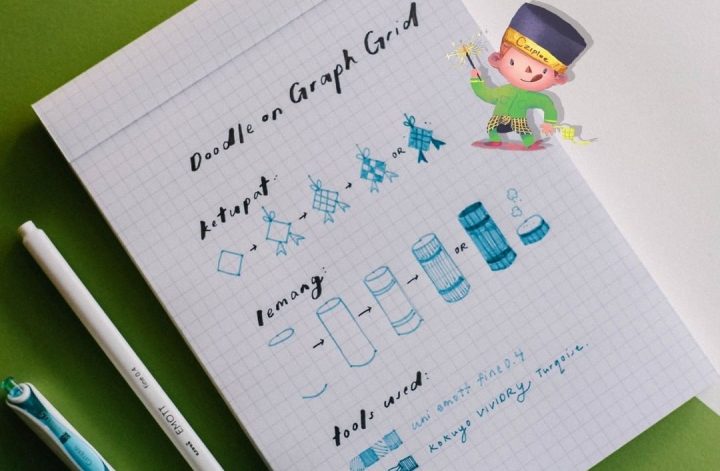 Doodle on Graph Grid
Cziplee
ketupat:
OR
lemang:
OR
tools used:
uni emott fine 0.4
KOKUYO VIVIDRY Turqoise.
Fine 0.4
uni EMOTT